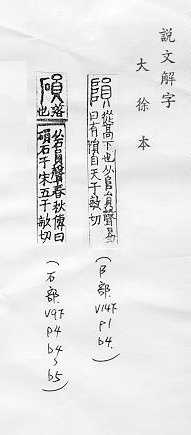 說文解字
大徐本
隕 從高下也从𨸏員聲易
曰有隕自天于敏切
(阝部. V14下 p1 b4.)
磒 落也从石員聲春秋傳曰
磒石于宋五于敏切
(石部. V9下 p4 b4~b5)